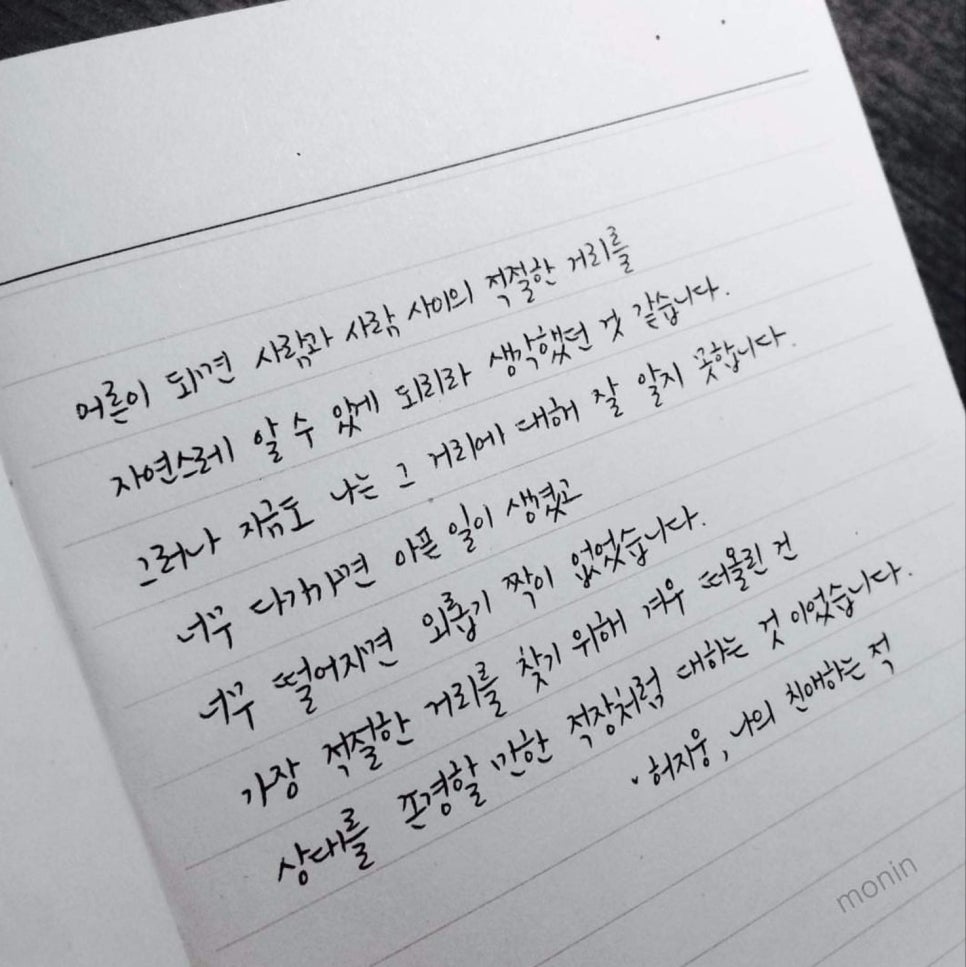 어른이 되면 사람과 사람 사이의 적절한 거리를
자연스레 알 수 있게 되리라 생각했던 것 같습니다.
그러나 지금도 나는 그 거리에 대해 잘 알지 못합니다.
너무 다가가면 아픈 일이 생겼고
너무 떨어지면 외롭기 짝이 없었습니다.
가장 적절한 거리를 찾기 위해 겨우 떠올린 건
상대를 존경할 만한 적장처럼 대하는 것 이었습니다.
· 허지웅, 나의 친애하는 적
monin